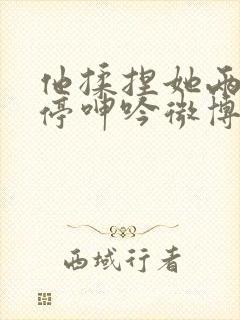 他揉捏她两
停呻吟微博
西域行者